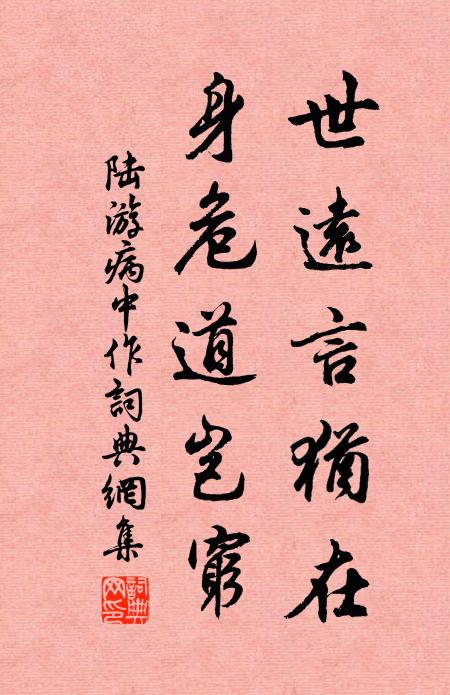 世遠言猶在
身危道豈窮
陆游病中作詞典網集
詞典
网印